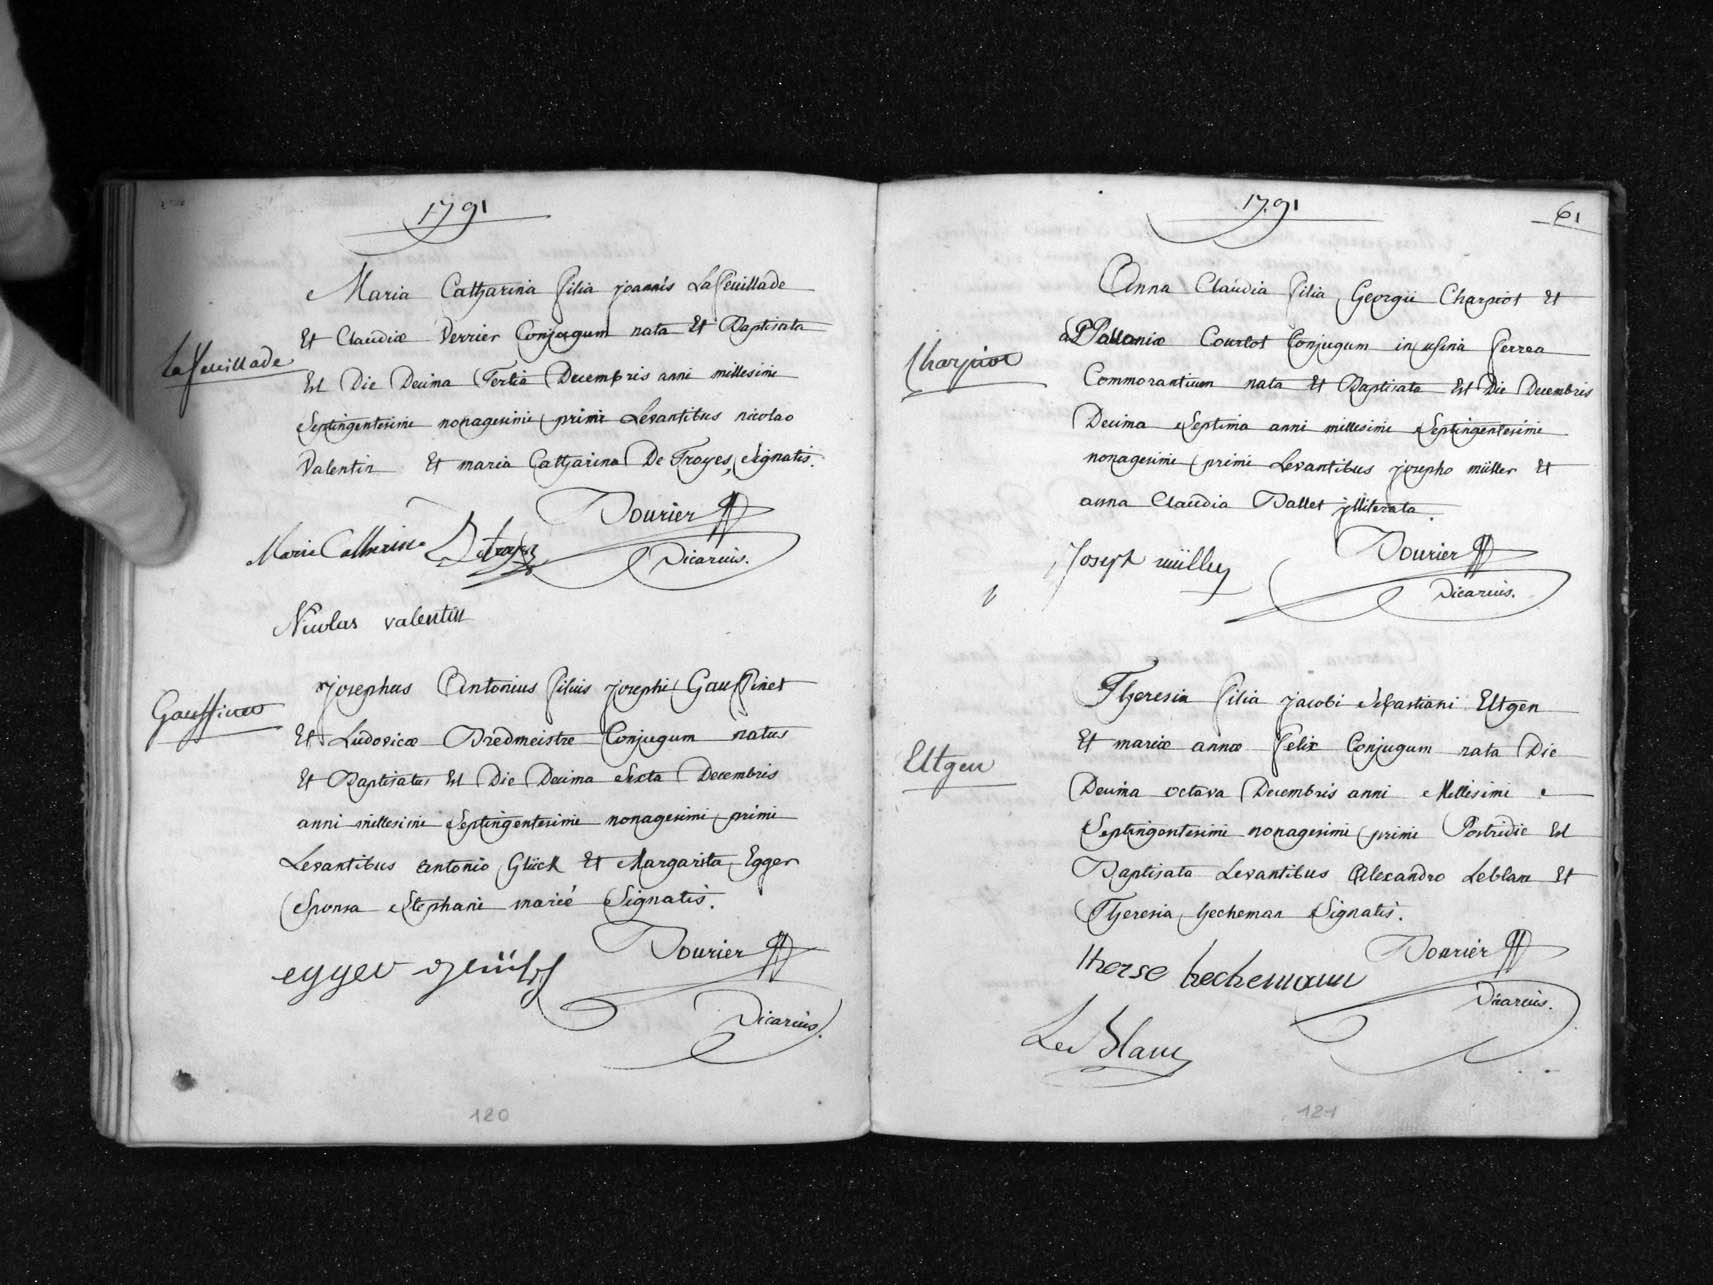 1791
Maria Catharina filia joannis Lafeuillade
Lafeuillade
Et Claudiæ Verrier Conjugum nata Et Baptisata
Est Die Decima Tertia Decembris anni millesimi
Septingentesimi nonagesimi primi Levantibus nicolao
Valentin Et maria Catharina De Troyes, Signatis.
Marie Catherine Detroyes
Nicolas valentin
Vicarius.
Josephus Antonius filius josephi Gauffinet
Gauffinet
Et Ludovicæ Bredmeistre Conjugum natus
Et Baptisatus Est Die Decima Sexta Decembris
anni millesimi Septingentesimi nonagesimi primi
Levantibus antonio Glück Et Margarita Egger
Sponsa Stephani marié Signatis.
egger
Vicarius.
120
1791
61
Anna Claudia filia Georgii Charpiot Et
Charpiot
Courtot Conjugum in usina ferrea
Commorantium nata Et Baptisata Est Die Decembris
Decima Septima anni millesimi Septingentesimi
nonagesimi primi Levantibus josepho müller Et
anna Claudia Ballet illiterata.
Joseph müller
Vicarius.
Theresia filia jacobi Sebastiani Eltgen
Eltgen
Et mariæ annæ felix Conjugum nata Die
Decima octava Decembris anni Millesimi
Septingentesimi nonagesimi primi Postridie Est
Baptisata Levantibus Alexandro Leblanc Et
Theresia hecheman Signatis.
therse hechemann
Le Blanc
Vicarius.
121